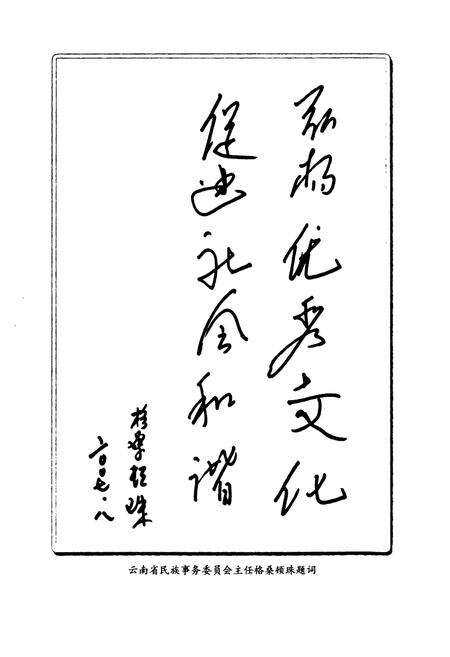 弘扬优秀文化
促进社会和谐
格桑顿珠
二〇〇七.八
云南省民族事务委员会主任格桑顿珠题词